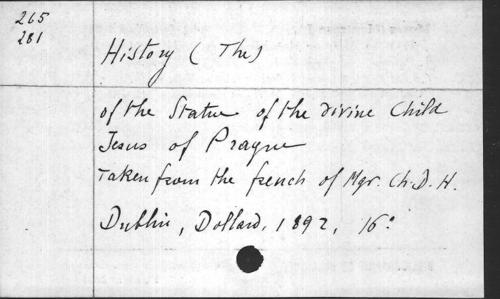 265
281
History (The)
of the Statue of the divine Child
Jesus of Prague
Taken from the french of Mgr. Ch. D. H.
Dublin, Dollard, 1892, 16°